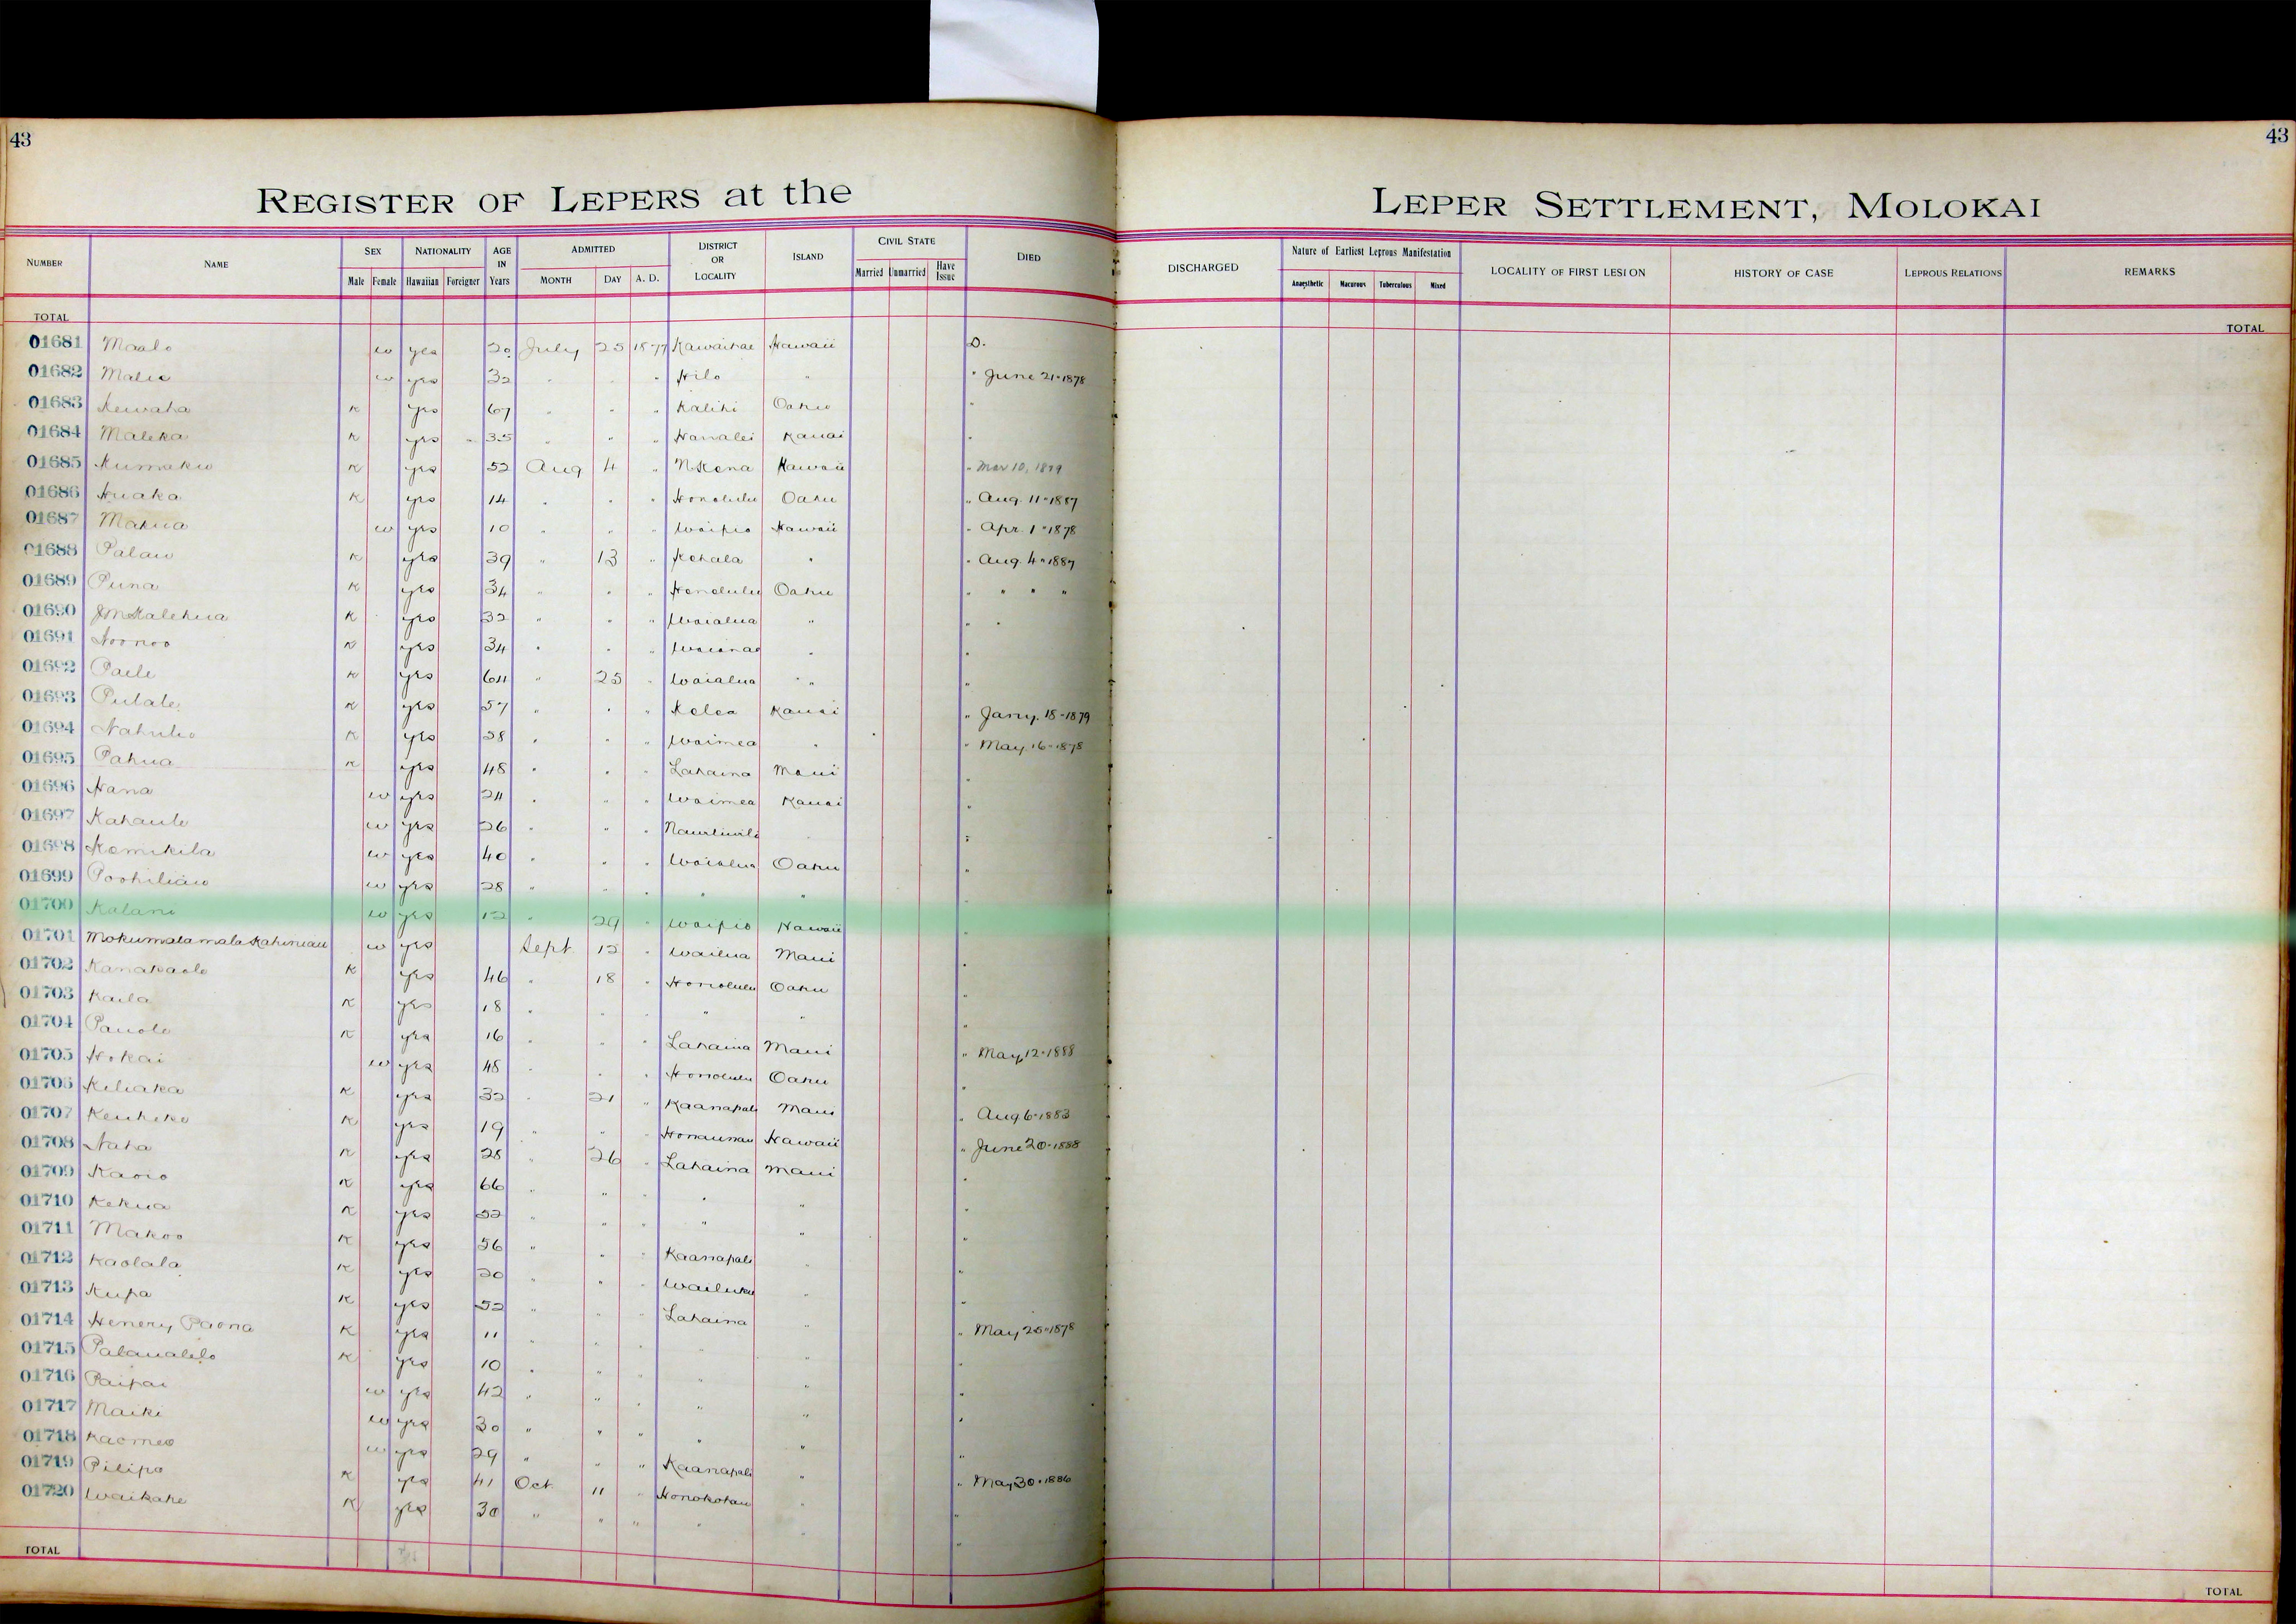 43
43
REGISTER OF LEPERS at the
LEPER SETTLEMENT, MOLOKAI
NUMBER NAME SEX NATIONALITY AGE IN Years ADMITTED DISTRICT OR LOCALITY ISLAND CIVIL STATE DIED
Male Female Hawaiian Foreigner MONTH DAY A. D. Married Unmarried Have Issue
DISCHARGED Nature of Earliest Leprous Manifestation LOCALITY OF FIRST LESION HISTORY OF CASE LEPROUS RELATIONS REMARKS
Anaesthetic Macurous Tuberculous Mixed
TOTAL TOTAL
01681 Maalo w yes 20 July 25 1877 Kawaihae Hawaii D.
01682 Malie w yes 32 " " " Hilo " " June 21-1878
01683 Kewaha K yes 67 " " " Kalihi Oahu "
01684 Maleka K yes 35 " " " Hanalei Kauai "
01685 Kumaku K yes 52 Aug 4 " N Kona Hawaii " Mar 10, 1879
01686 Huaka K yes 14 " " " Honolulu Oahu " Aug. 11-1887
01687 Makua w yes 10 " " " Waipio Hawaii " Apr. 1-1878
01688 Palau K yes 39 " 13 " Kohala " " Aug. 4-1887
01689 Puna K yes 34 " " " Honolulu Oahu " " " "
01690 J M Kalehua K yes 32 " " " Waialua " " "
01691 Noonoo K yes 34 " " " Waianae " "
01692 Paele K yes 64 " 25 " Waialua " "
01693 Pulale K yes 57 " " " Kolea Kauai " Jany. 18-1879
01694 Nahulio K yes 28 " " " Waimea " " May 16-1878
01695 Pahua K yes 48 " " " Lahaina Maui "
01696 Hana w yes 24 " " " Waimea Kauai "
01697 Kahaule w yes 26 " " " Nawiliwili "
01698 Kamikila w yes 40 " " " Waialua Oahu "
01699 Poohiliau w yes 28 " " " " " "
01700 Kalani w yes 12 " 29 " Waipio Hawaii "
01701 Mokumalamala Kahiniau w yes Sept 12 " Wailua Maui "
01702 Kanakaole K yes 46 " 18 " Honolulu Oahu "
01703 Kaila K yes 18 " " " " " "
01704 Pauole K yes 16 " " " Lahaina Maui " May 12-1888
01705 Hokai w yes 48 " " " Honolulu Oahu "
01706 Keliaka K yes 32 " 21 " Kaanapali Maui " Aug 6-1883
01707 Keuheke K yes 19 " " " Honaunau Hawaii " June 20-1888
01708 Naha K yes 28 " 26 " Lahaina Maui "
01709 Kaoio K yes 66 " " " " " "
01710 Kekua K yes 52 " " " " " "
01711 Makoo K yes 56 " " " Kaanapali " "
01712 Kaolala K yes 20 " " " Wailuku " "
01713 Kupa K yes 52 " " " Lahaina " "
01714 Henery Paona K yes 11 " " " " " " May 25-1878
01715 Palaualelo K yes 10 " " " " " "
01716 Paipai w yes 42 " " " " " "
01717 Maiki w yes 30 " " " " " "
01718 Kaomea w yes 29 " " " Kaanapali " "
01719 Pilipo K yes 41 Oct 11 " Honokohau " " May 30-1886
01720 Waikahe K yes 30 " " " " " "
TOTAL TOTAL